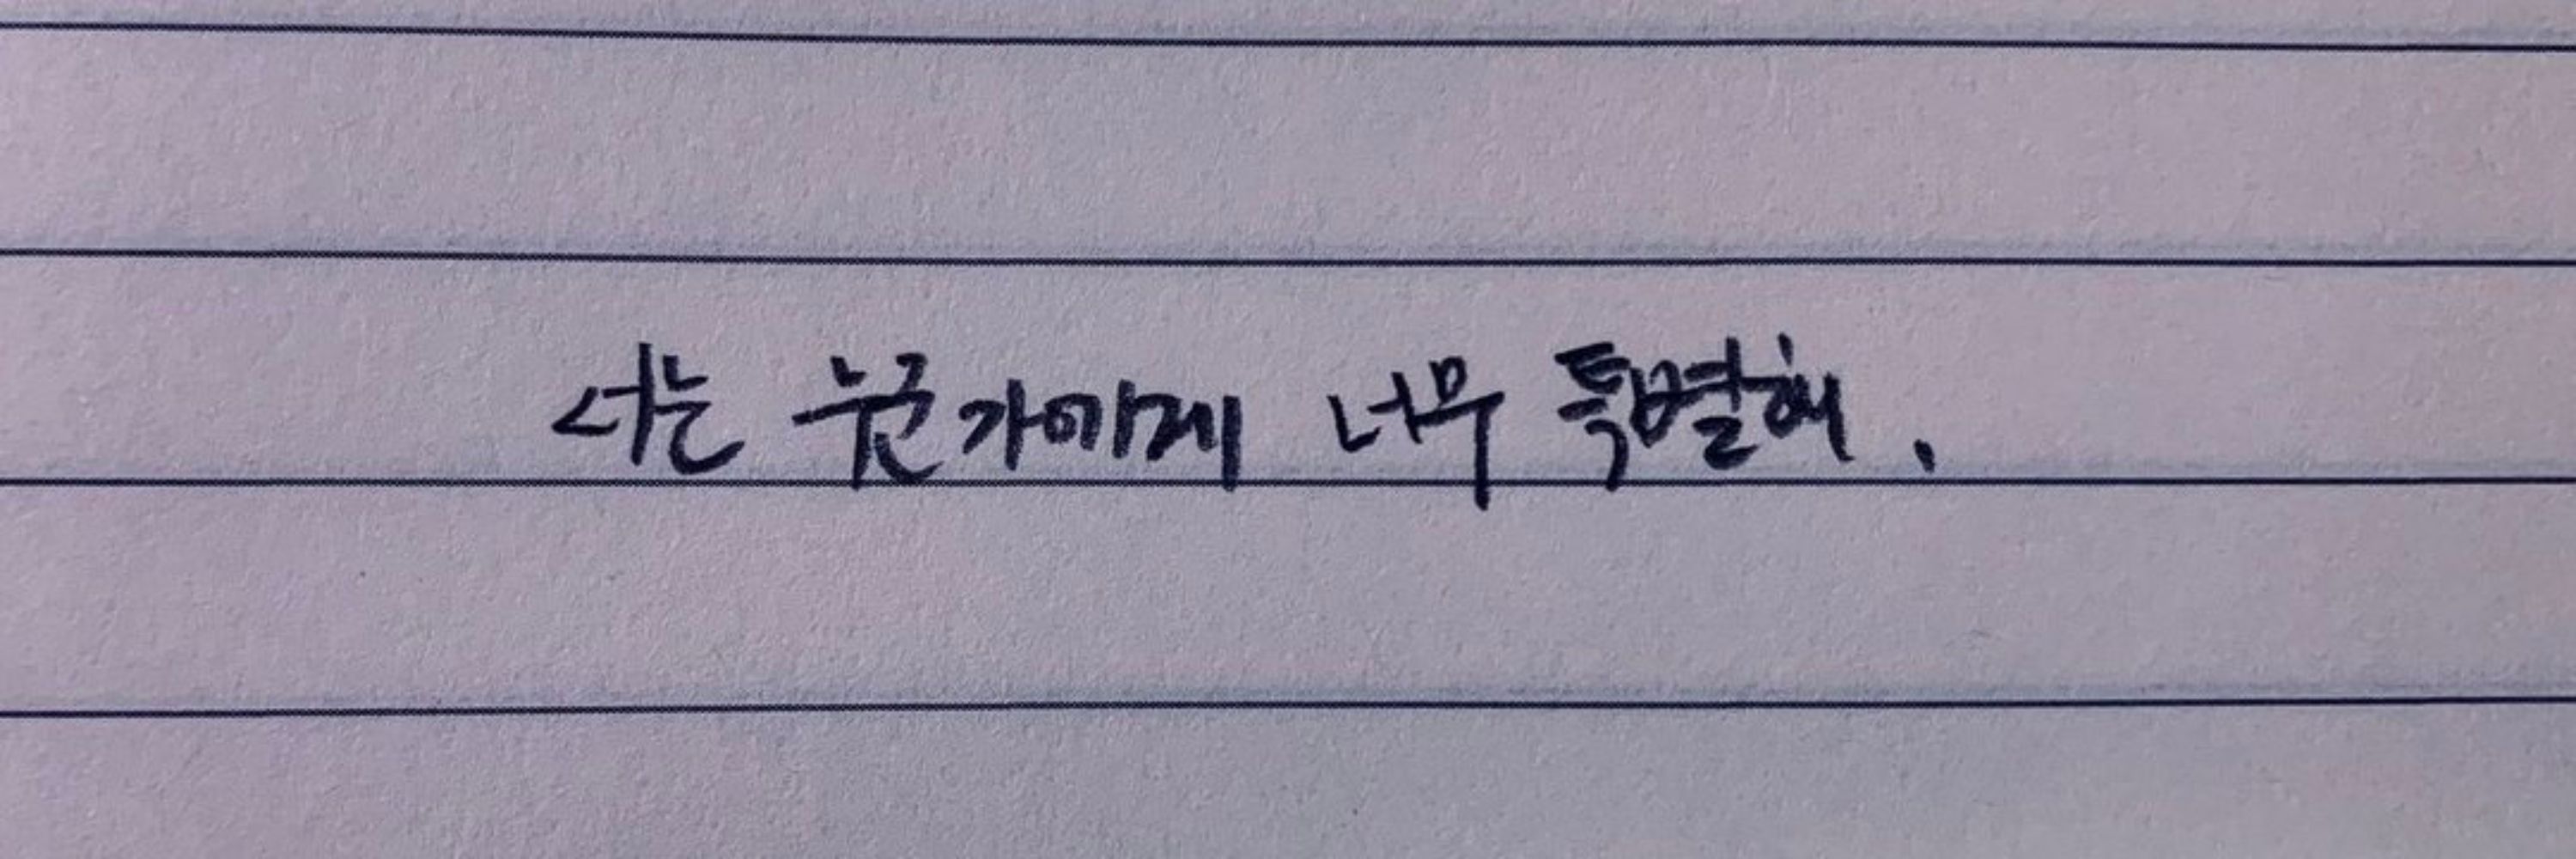 너는 누군가에게 너무 특별해.